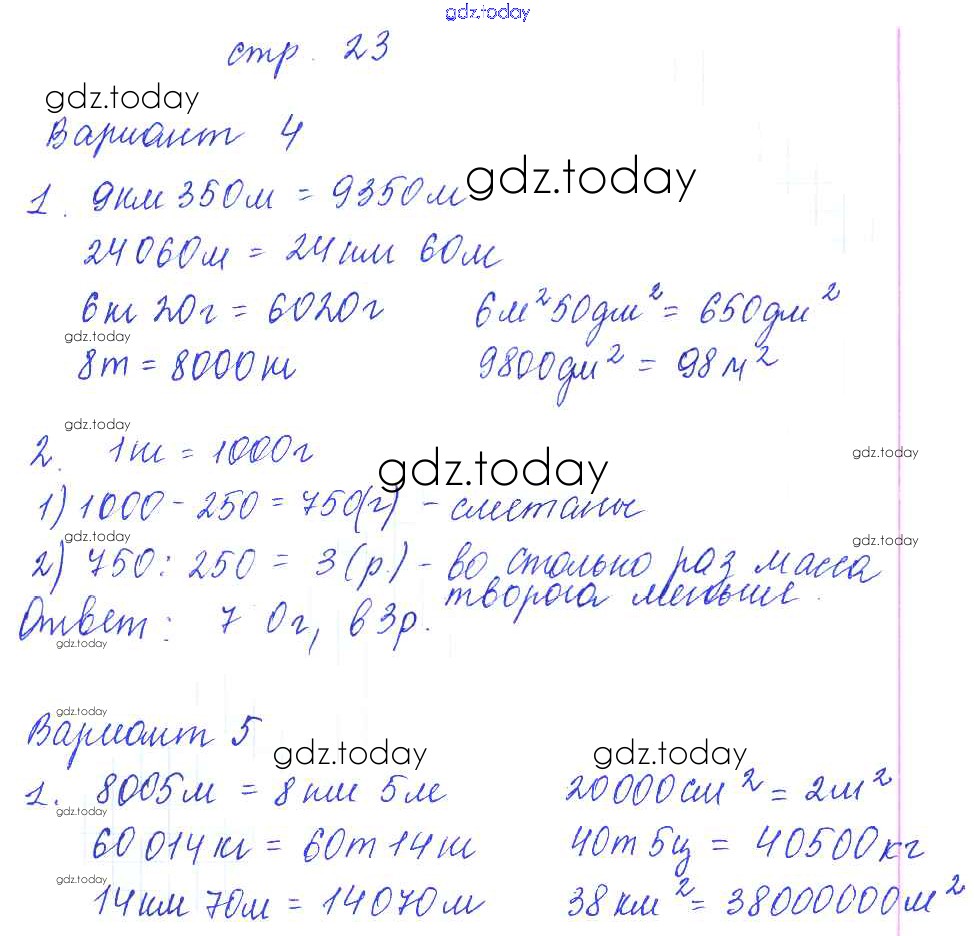 gdz.today
стр. 23
gdz.today
Вариант 4
1. 9км 350м = 9350м gdz.today
24060м = 24км 60м
6кг 20г = 6020г 6м²50дм² = 650дм²
gdz.today
8т = 8000кг 9800дм² = 98м²
gdz.today
2. 1кг = 1000г
gdz.today gdz.today
1) 1000 - 250 = 750(г) - сметаны
gdz.today gdz.today
2) 750 : 250 = 3(р.) - во столько раз масса
творога меньше.
Ответ: 7 0г, в 3р.
gdz.today
gdz.today
Вариант 5
gdz.today gdz.today
1. 8005м = 8км 5м 20000см² = 2м²
gdz.today
60014кг = 60т 14кг 40т 5ц = 40500кг
gdz.today
14км 70м = 14070м 38км² = 38000000м²